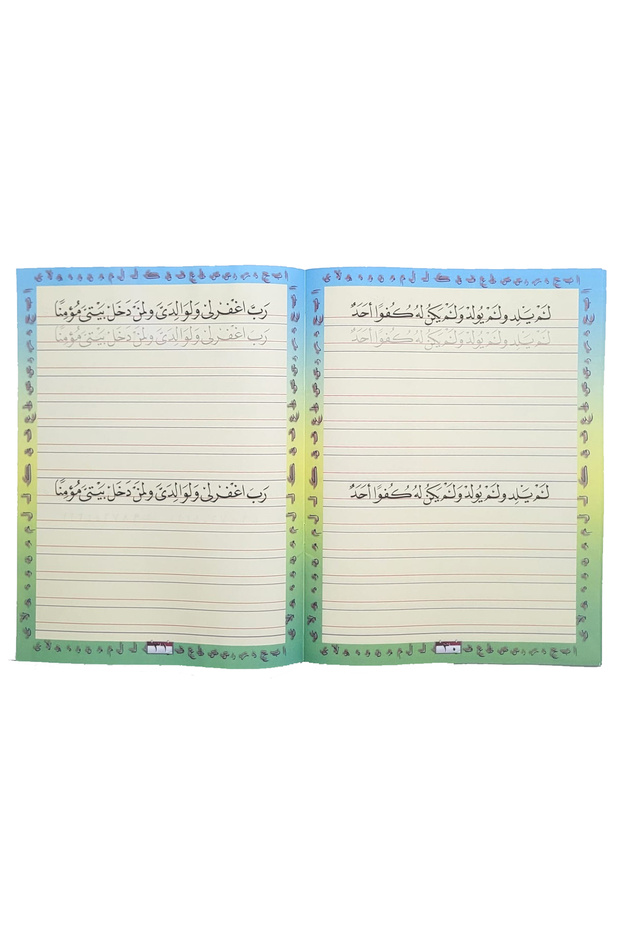 لَمْ يَلِد ولَمْ يُولَدْ وَلَمْ يَكنْ لهُ كُفوًا أحَدٌ
لَمْ يَلِد ولَمْ يُولَدْ وَلَمْ يَكنْ لهُ كُفوًا أحَدٌ
لَمْ يَلِد ولَمْ يُولَدْ وَلَمْ يَكنْ لهُ كُفوًا أحَدٌ
رَبَّ اغْفرلىْ وَلوَالِدَىَ ولمَنْ دَخَلَ بَيْتىَ مُؤمِنًا
رَبَّ اغْفرلىْ وَلوَالِدَىَ ولمَنْ دَخَلَ بَيْتىَ مُؤمِنًا
رَبَّ اغْفرلىْ وَلوَالِدَىَ ولمَنْ دَخَلَ بَيْتىَ مُؤمِنًا